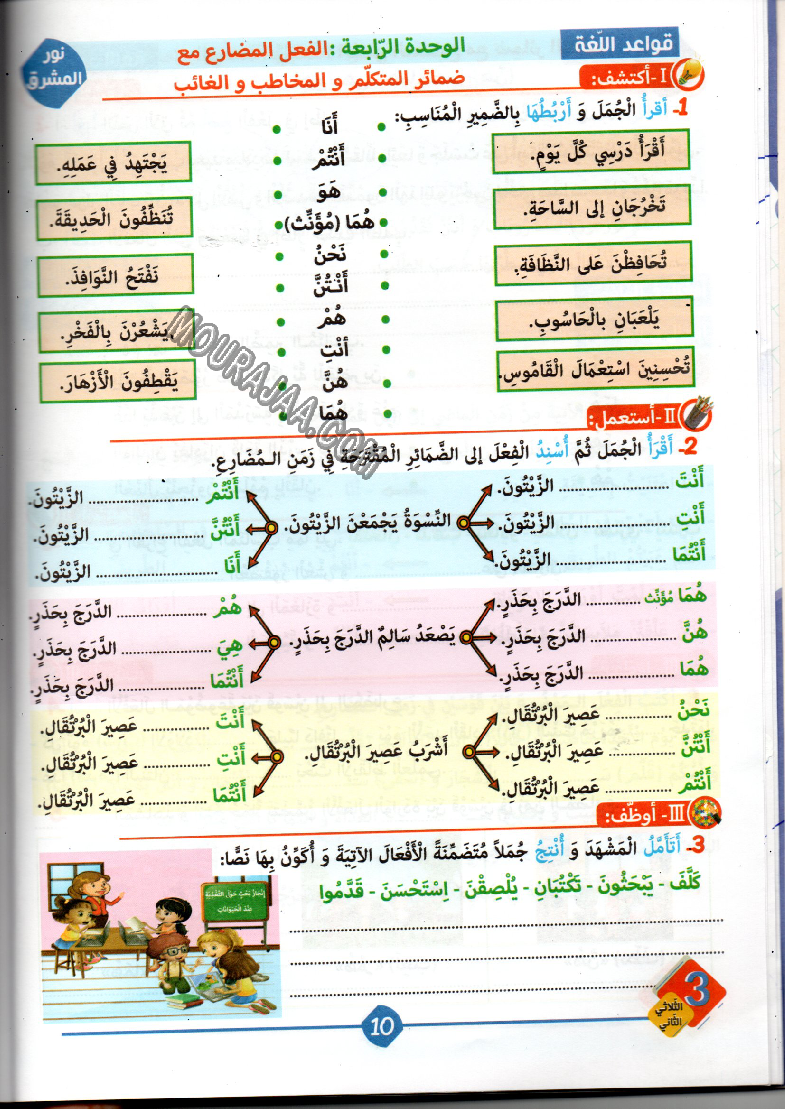 قواعد اللّغة
الوحدة الرّابعة : الفعل المضارع مع
ضمائر المتكلّم و المخاطب و الغائب
نور
المشرق
I- أكتشف:
1- أَقرأُ الْجُمَلَ وَ أَرْبُطُهَا بِالضَّمِيرِ الْمُنَاسِبِ:
أَقْرَأُ دَرْسِي كُلَّ يَوْمٍ.
تَخْرُجَانِ إلى السَّاحَةِ.
تُحَافِظْنَ عَلى النَّظَافَةِ.
يَلْعَبَانِ بِالْحَاسُوبِ.
تُحْسِنِينَ اسْتِعْمَالَ الْقَامُوسِ.
أَنَا
أَنْتُمْ
هَوَ
هُمَا (مُؤَنَّث)
نَحْنُ
أَنْتُنَّ
هُمْ
أنْتِ
هُنَّ
هُمَا
يَجْتَهِدُ فِي عَمَلِهِ.
تُنَظِّفُونَ الْحَدِيقَةَ.
نَفْتَحُ النَّوَافِذَ.
يَشْعُرْنَ بِالْفَخْرِ.
يَقْطِفُونَ الْأَزْهَارَ.
MOURAJAA.COM
II- أستعمل:
2- أَقْرَأُ الْجُمَلَ ثُمَّ أُسْنِدُ الْفِعْلَ إلى الضَّمَائِرِ الْمُقْتَرَحَةِ فِي زَمَنِ الـمُضَارِعِ.
أَنْتَ .................. الزَّيْتُونَ.
أَنْتِ .................. الزَّيْتُونَ.
أَنْتُمَا .................. الزَّيْتُونَ.
النِّسْوَةُ يَجْمَعْنَ الزَّيْتُونَ.
أَنْتُمْ .................. الزَّيْتُونَ.
أَنْتُنَّ .................. الزَّيْتُونَ.
أَنَا .................. الزَّيْتُونَ.
هُمَا مُؤَنَّث ............ الدَّرَجَ بِحَذَرٍ.
هُنَّ .................. الدَّرَجَ بِحَذَرٍ.
هُمَا .................. الدَّرَجَ بِحَذَرٍ.
يَصْعَدُ سَالِمٌ الدَّرَجَ بِحَذَرٍ.
هُمْ .................. الدَّرَجَ بِحَذَرٍ.
هِيَ .................. الدَّرَجَ بِحَذَرٍ.
أَنْتُمَا .................. الدَّرَجَ بِحَذَرٍ.
نَحْنُ .................. عَصِيرَ الْبُرْتُقَالِ.
أَنْتُنَّ .................. عَصِيرَ الْبُرْتُقَالِ.
أَنْتُم .................. عَصِيرَ الْبُرْتُقَالِ.
أَشْرَبُ عَصِيرَ الْبُرْتُقَالِ.
أَنْتَ .................. عَصِيرَ الْبُرْتُقَالِ.
أَنْتِ .................. عَصِيرَ الْبُرْتُقَالِ.
أَنْتُمَا .................. عَصِيرَ الْبُرْتُقَالِ.
III- أوظّف:
3- أَتَأَمَّلُ الْمَشْهَدَ وَ أُنْتِجُ جُمَلاً مُتَضَمِّنَةً الْأَفْعَالَ الآتِيَةَ وَ أُكَوِّنُ بِهَا نَصًّا:
كَلَّفَ - يَبْحَثُونَ - تَكْتُبَانِ - يُلْصِقْنَ - اِسْتَحْسَنَ - قَدَّمُوا
إِنْجَازُ بَحْثٍ حَوْلَ التَّغْذِيَةِ
عِنْدَ الْحَيَوَانَاتِ
3
الثّلاثي
الثّاني
10